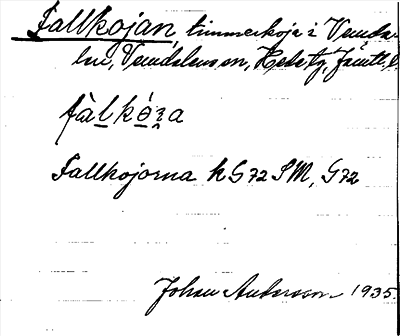 Fallkojan, timmerkoja i Vemda-
len, Vemdalens sn, Hede tg, Jämtl. l.
fàlkó̱ʒa
Fallkojorna k G72 SM, G72
Johan Andersson 1935.